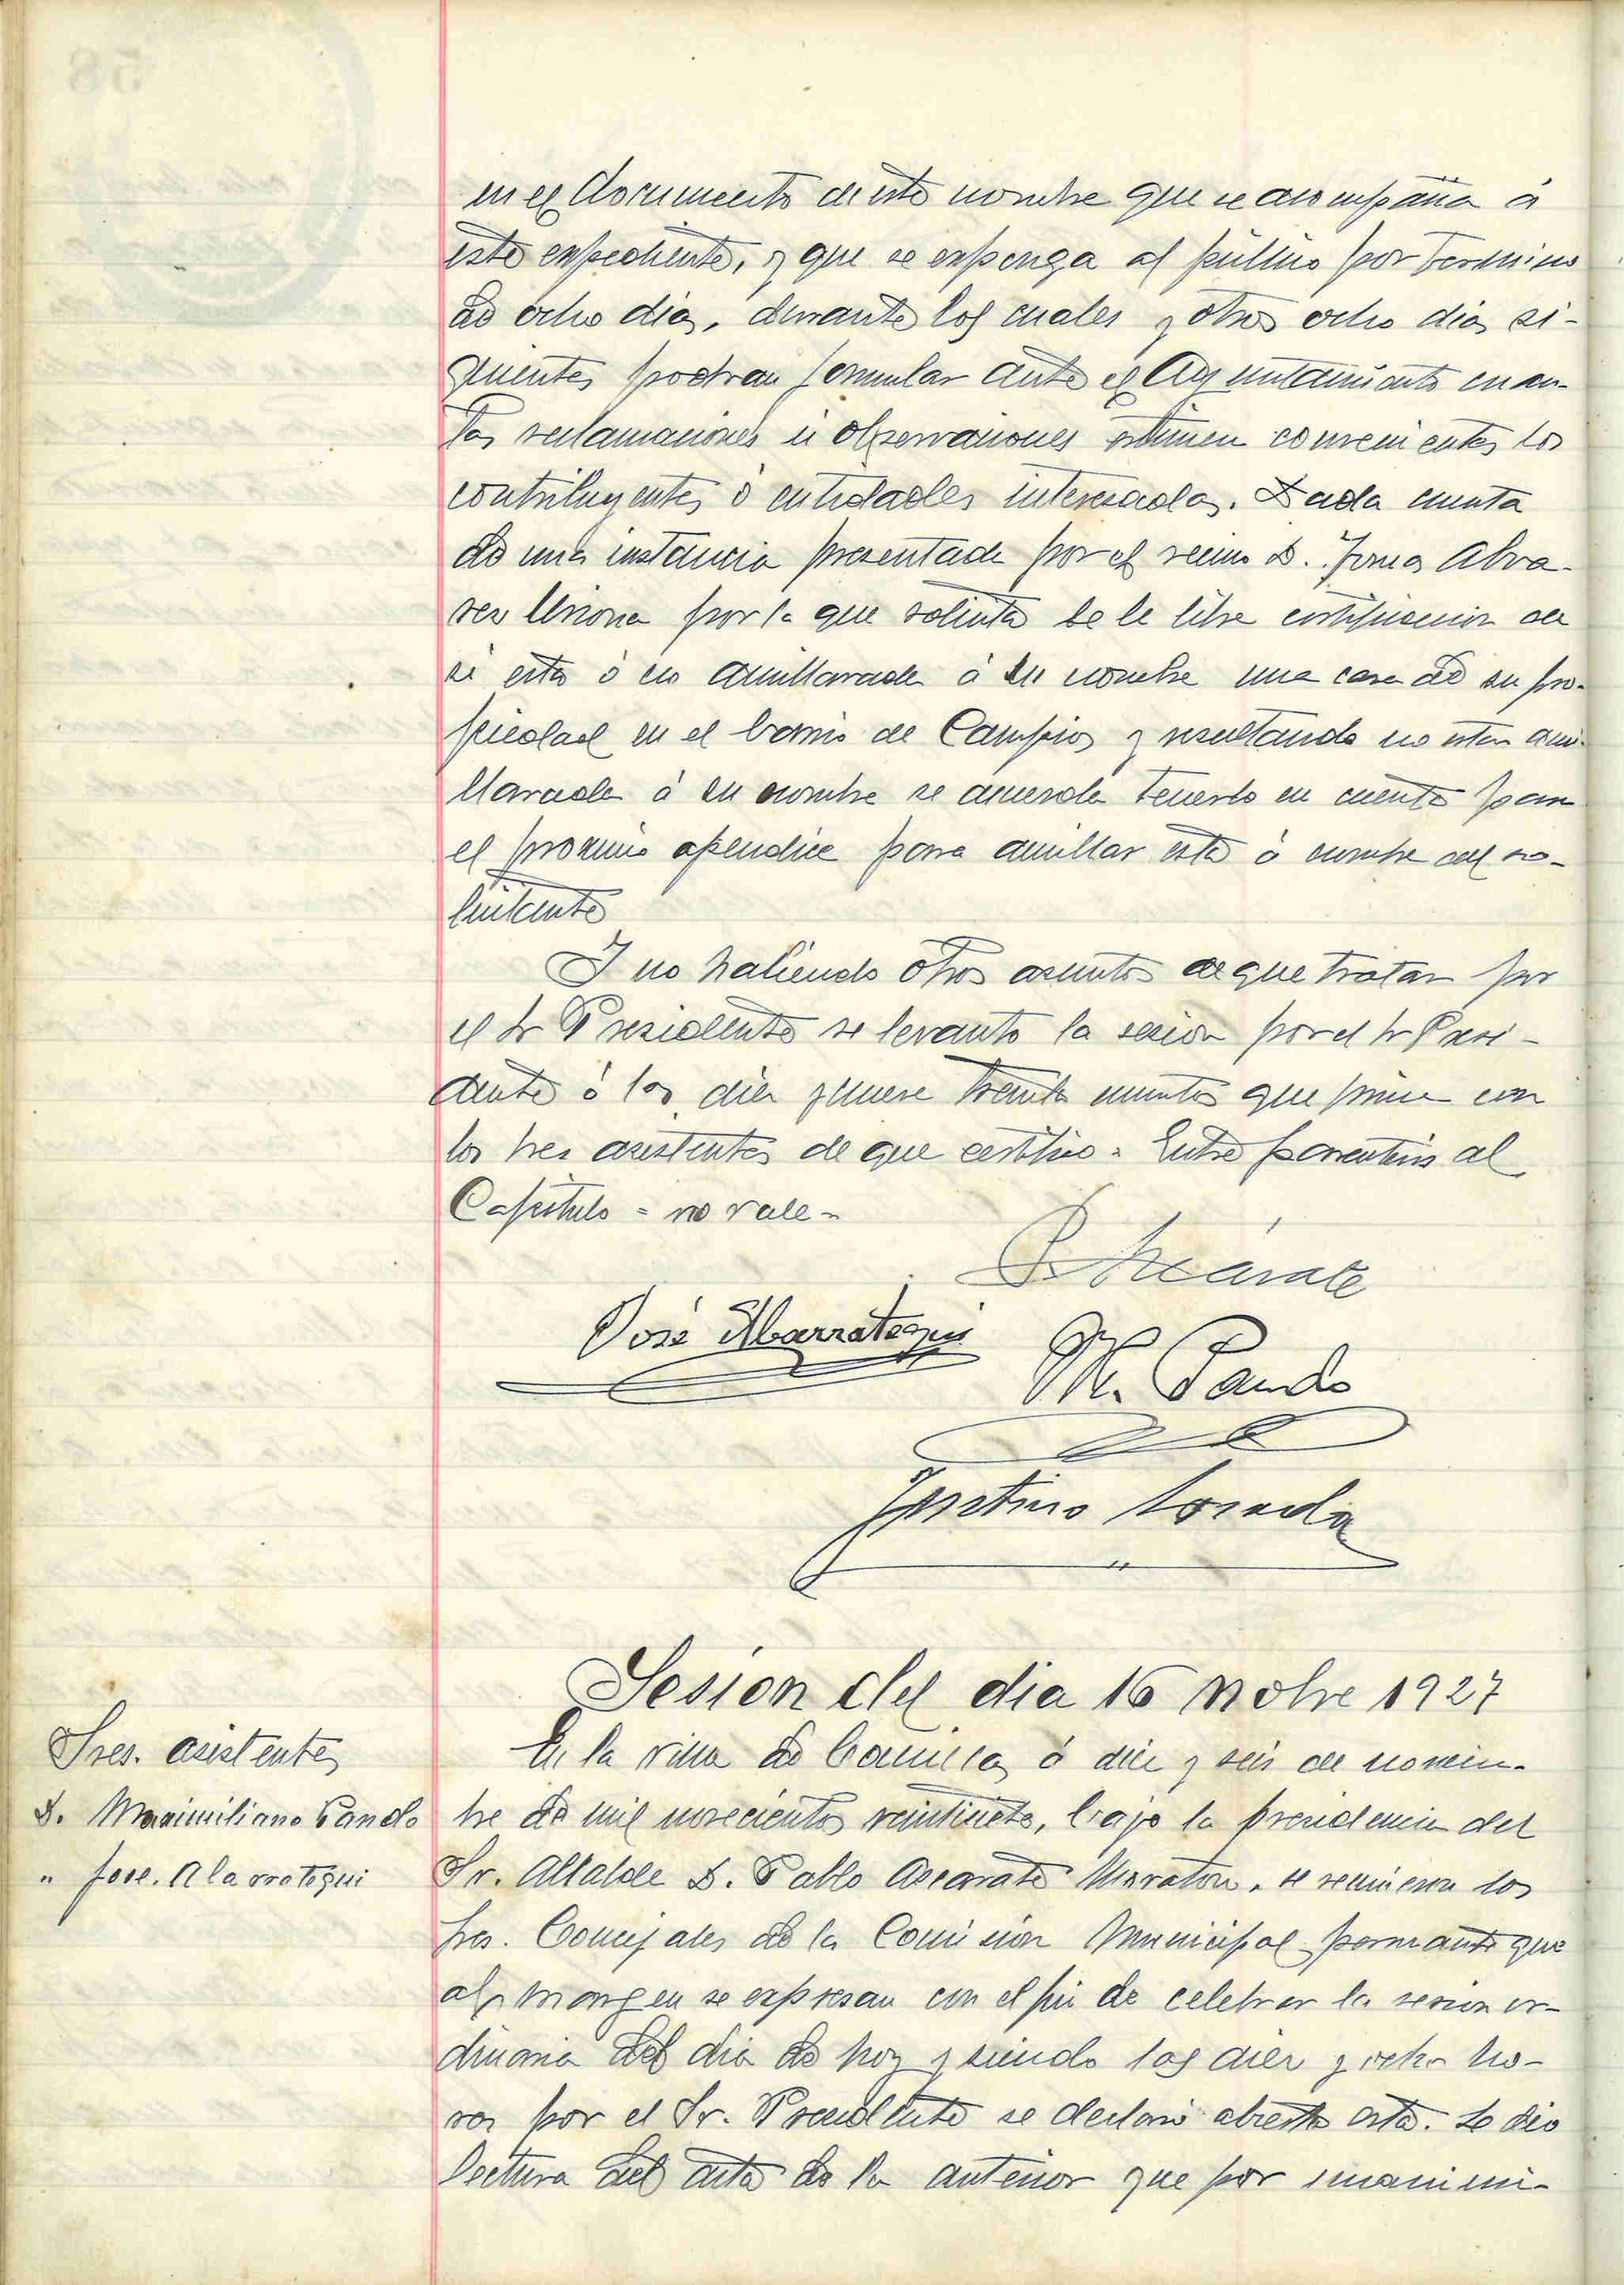 en el documento de este nombre que se acompaña á
este expediente, y que se exponga al publico por termino
de ocho dias, durante los cuales y otros ocho dias si-
guientes podran formular ante el Ayuntamiento cuan-
tas reclamaciones ú observaciones estimen convenientes los
contribuyentes ó entidades interesadas. Dada cuenta
de una instancia presentada por el vecino D. Tomas Alva-
rez por la que solicita se le libre certificacion de
si esta ó no amillarada á su nombre una casa de su pro-
piedad en el barrio de Campios y resultando no estar ami-
llarada á su nombre se acuerda tenerlo en cuenta para
el proximo apendice para amillar esta á nombre del so-
licitante
Y no habiendo otros asuntos de que tratar por
el Sr Presidente se levanto la sesion por el Sr Presi-
dente á las diez y nueve treinta minutos que firma con
los Sres asistentes de que certifico = Entre parentesis al
Capitulo = no vale =
P. Azcárate
José Abarrategui
M. Pando
Justino Losada
Sesion del dia 16 nobre 1927
Sres. asistentes
D. Maximiliano Pando
" Jose. Abarrategui
En la villa de Comillas á diez y seis de noviem-
bre de mil novecientos veintisiete, bajo la presidencia del
Sr. Alcalde D. Pablo Azcarate Maraton, se reunieron los
Sres. Concejales de la Comision Municipal permante que
al margen se expresan con el fin de celebrar la sesion or-
dinaria del dia de hoy y siendo las diez y ocho ho-
ras por el Sr. Presidente se declaró abierta esta. Se dio
lectura del acta de la anterior que por unanimi-